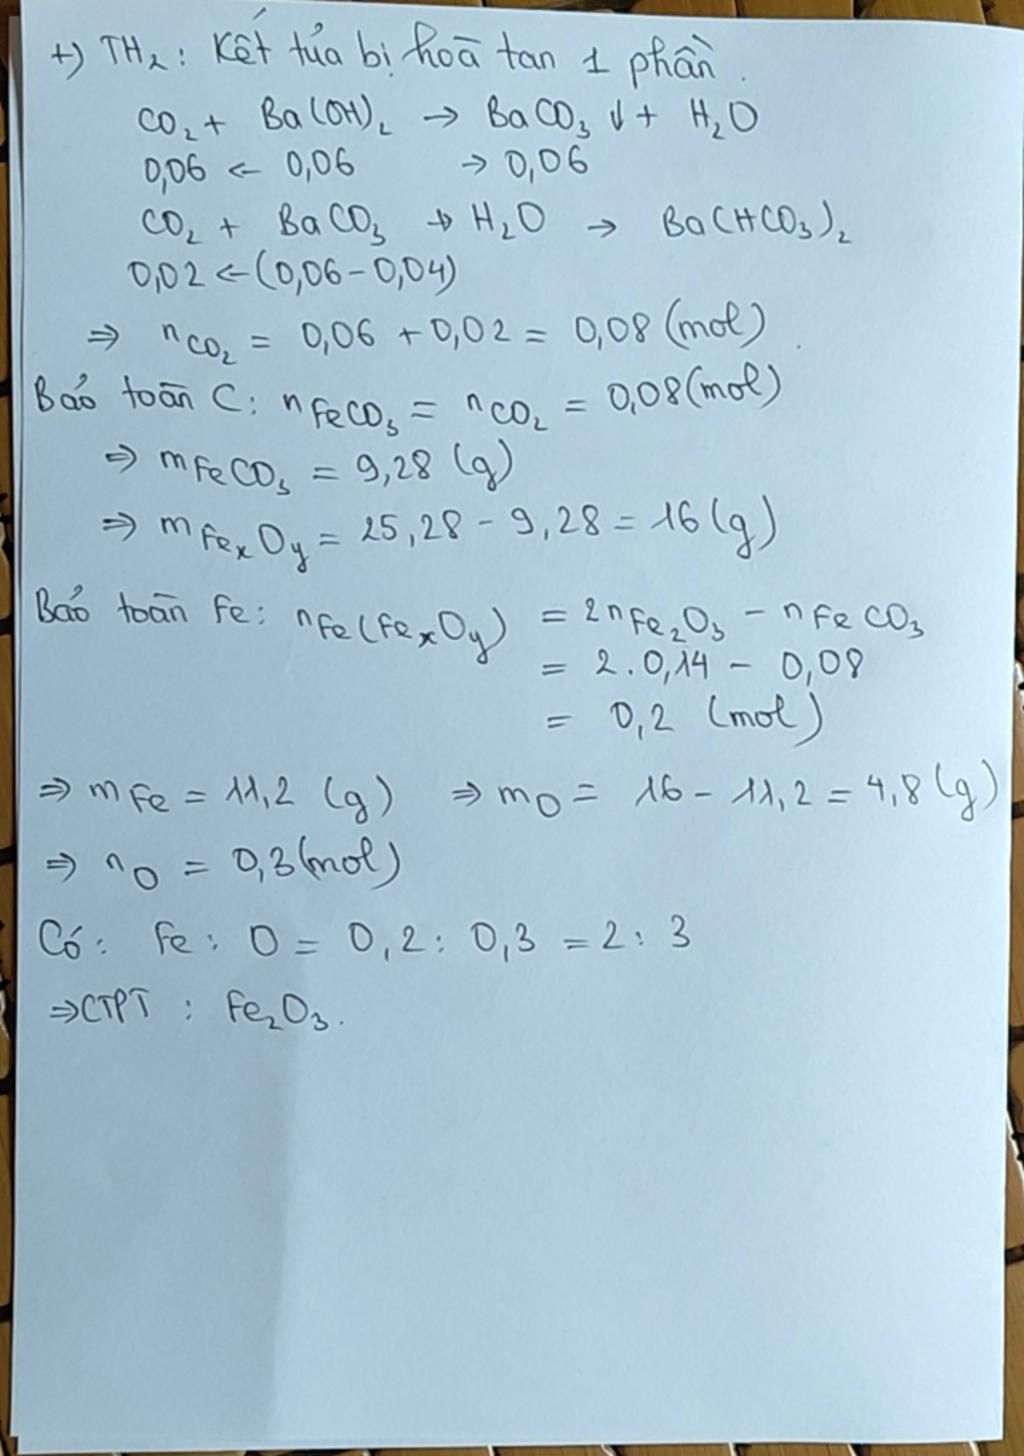 +) TH₂: Kết tủa bị hoà tan 1 phần.
CO₂ + Ba(OH)₂ → BaCO₃ ↓ + H₂O
0,06 ← 0,06 → 0,06
CO₂ + BaCO₃ + H₂O → Ba(HCO₃)₂
0,02 ← (0,06 - 0,04)
⇒ nCO₂ = 0,06 + 0,02 = 0,08 (mol).
Bảo toàn C: nFeCO₃ = nCO₂ = 0,08 (mol)
⇒ mFeCO₃ = 9,28 (g)
⇒ mFeₓOy = 25,28 - 9,28 = 16 (g)
Bảo toàn Fe: nFe(FeₓOy) = 2nFe₂O₃ - nFeCO₃
= 2.0,14 - 0,08
= 0,2 (mol)
⇒ mFe = 11,2 (g) ⇒ mO = 16 - 11,2 = 4,8 (g)
⇒ nO = 0,3 (mol)
Có: Fe : O = 0,2 : 0,3 = 2 : 3
⇒ CTPT : Fe₂O₃.